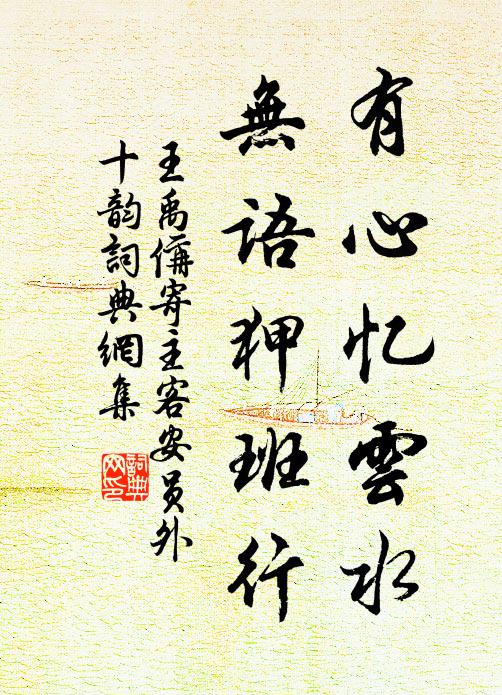 有心忆雲水
無語狎班行
王禹偁寄主客安员外
十韵詞典網集
詞典
网印